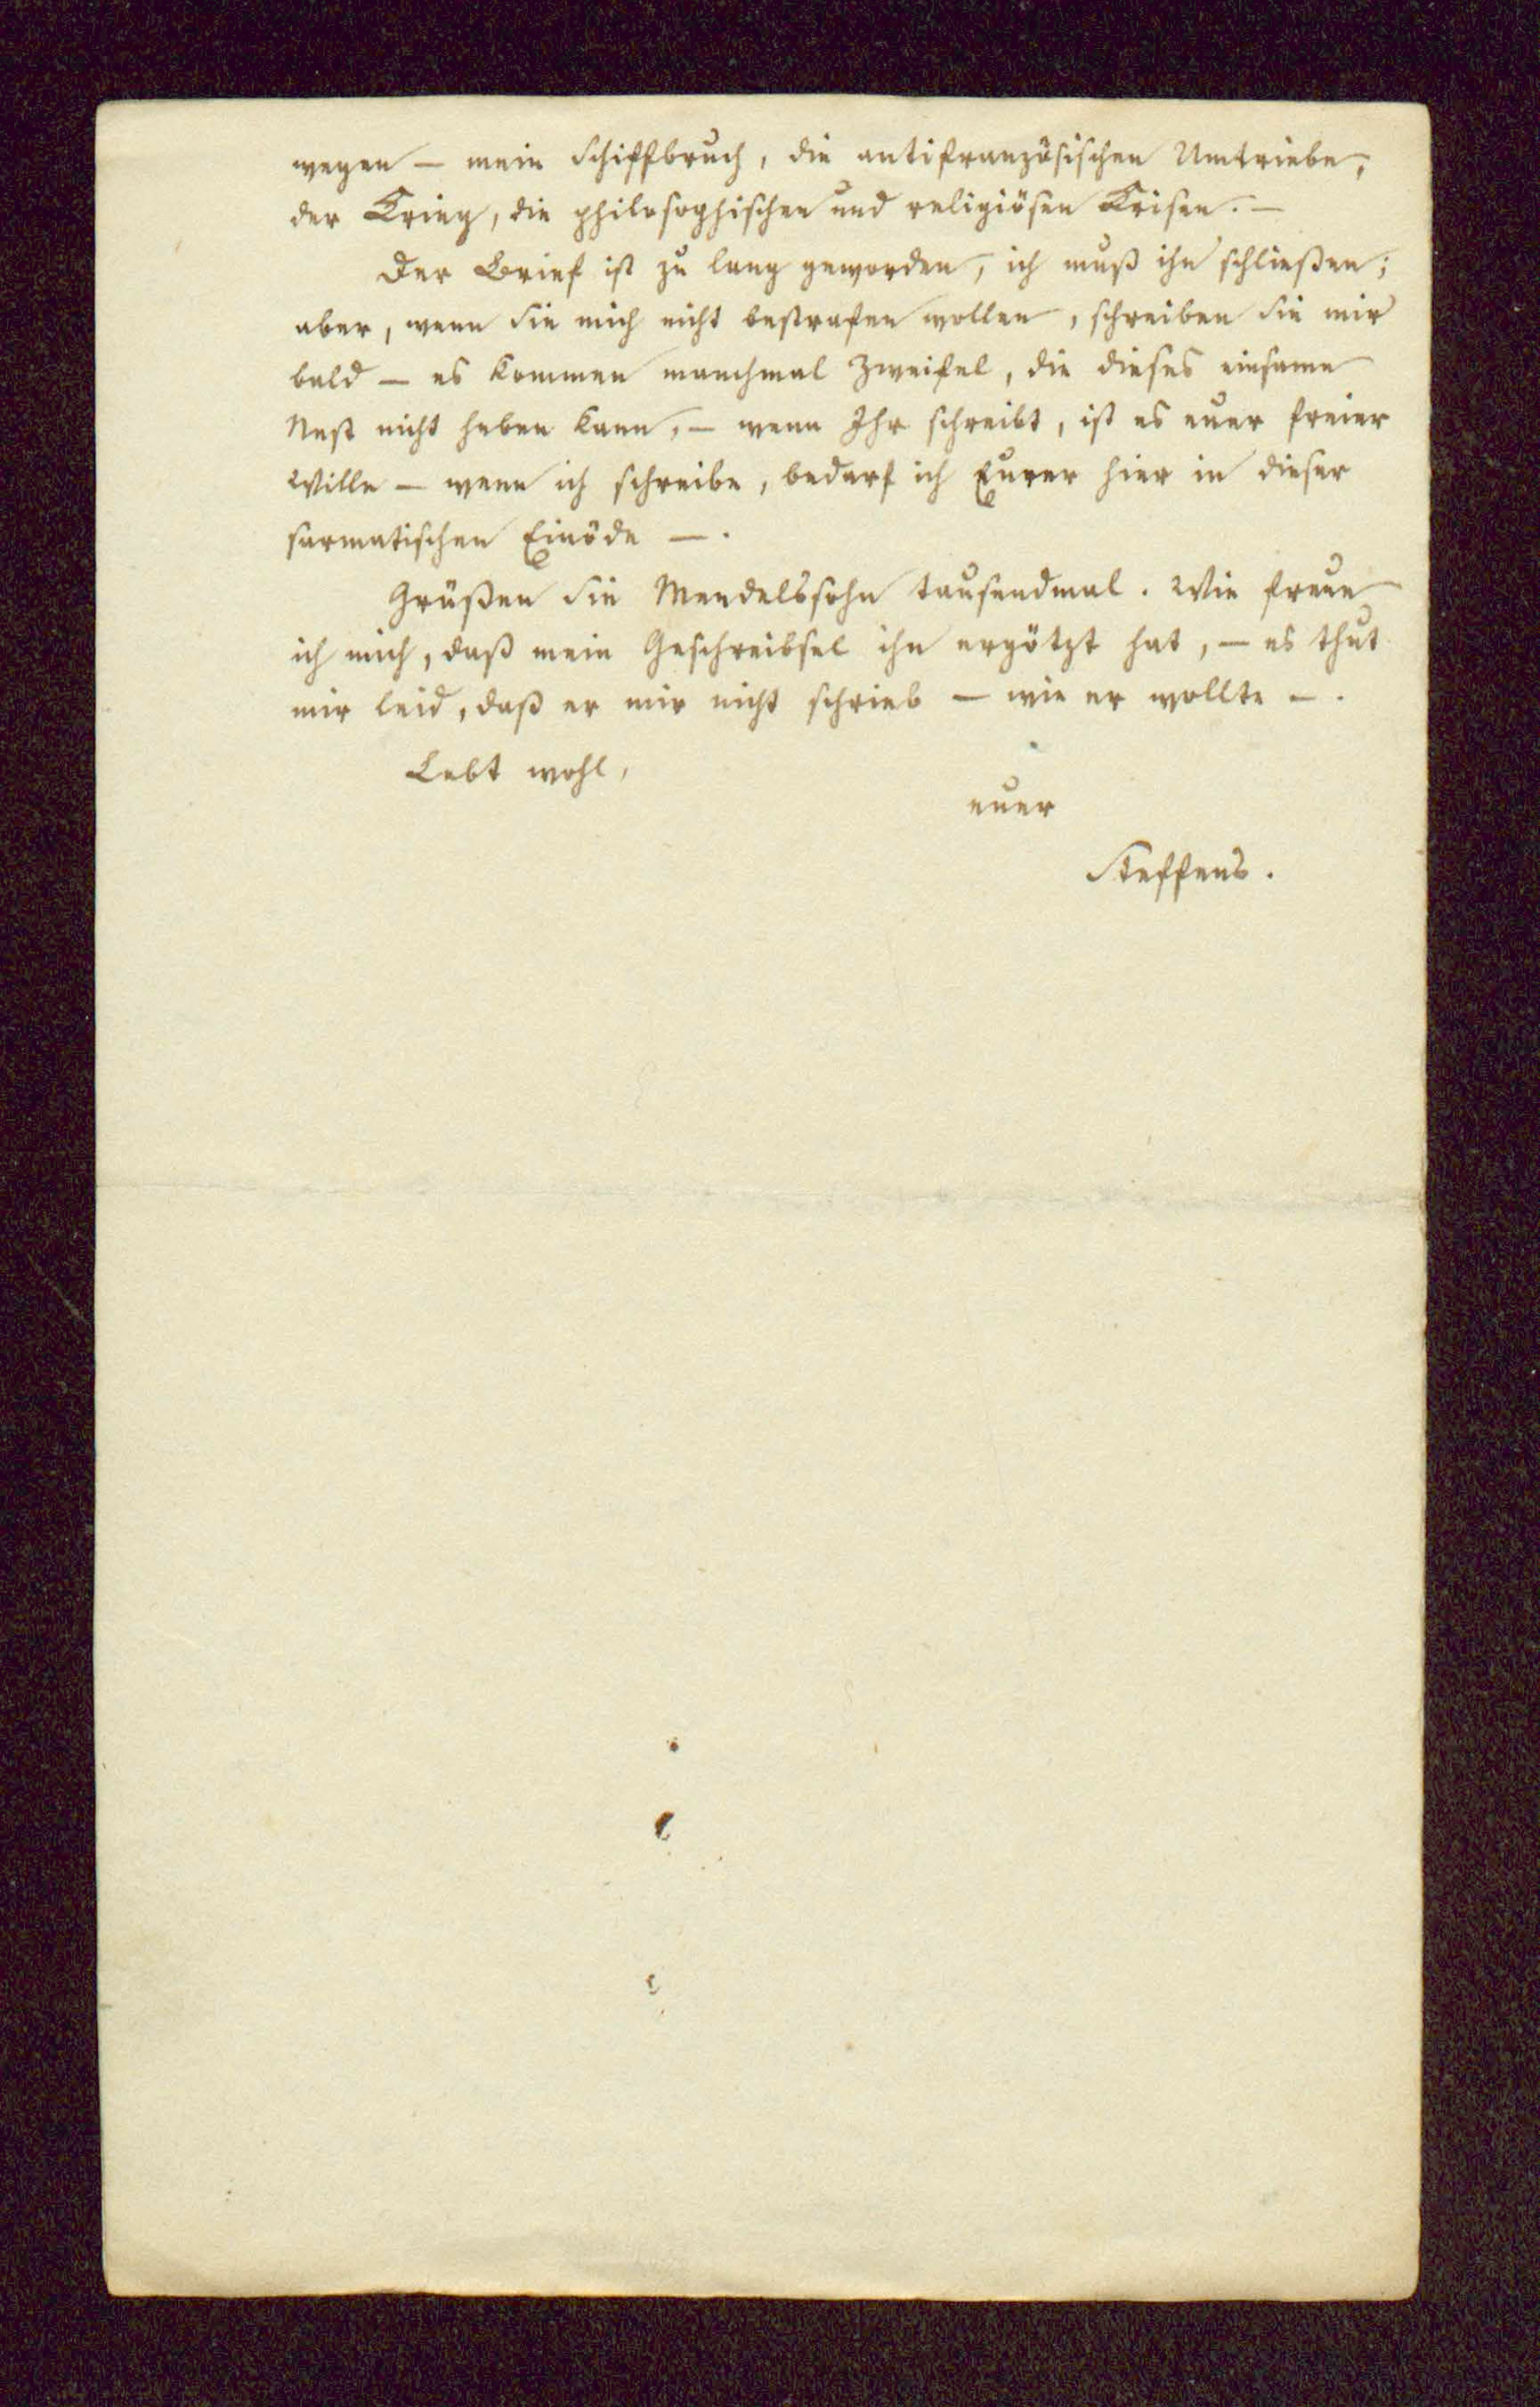 wegen — mein Schiffbruch, die antifranzösischen Umtriebe,
der Krieg, die philosophischen und religiösen Krisen. —
Der Brief ist zu lang geworden, ich muß ihn schließen;
aber, wenn Sie mich nicht bestrafen wollen, schreiben Sie mir
bald — es kommen manchmal Zweifel, die dieses einsame
Nest nicht heben kann, — wenn Ihr schreibt, ist es euer freier
Wille — wenn ich schreibe, bedarf ich Eurer hier in dieser
sarmatischen Einöde —.
Grüßen Sie Mendelssohn tausendmal. Wie freue
ich mich, daß mein Geschreibsel ihn ergötzt hat, — es thut
mir leid, daß er mir nicht schrieb — wie er wollte —.
Lebt wohl,
euer
Steffens.